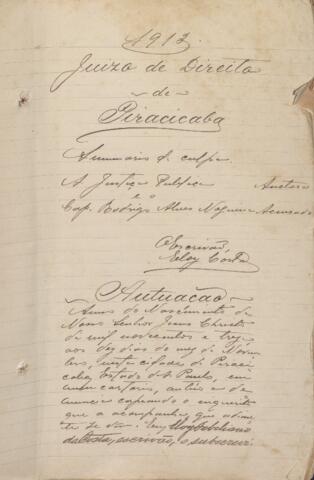 1913.
Juizo de Direito
de
Piracicaba
Summario de culpa
A Justiça Publica Auctora
e
Cap. Rodrigo Alves Nogueira Accusado
Escrivão,
Eloy Costa
Autuação
Anno do Nascimento de
Nosso Senhor Jesus Christo
de mil novecentos e treze
aos dez dias do mez de
nesta cidade de Piraci
caba, Estado de S. Paulo, em
meu cartorio, autúo a de
nuncia capeando o inquerito
que a acompanha, que adian
te se vê. Eu, Eloy
da Costa, escrivão, o subscrevi.